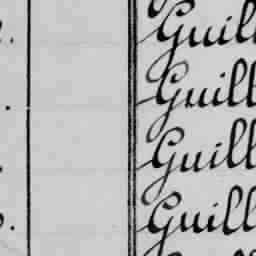 Guill
Guill
Guill
Guill